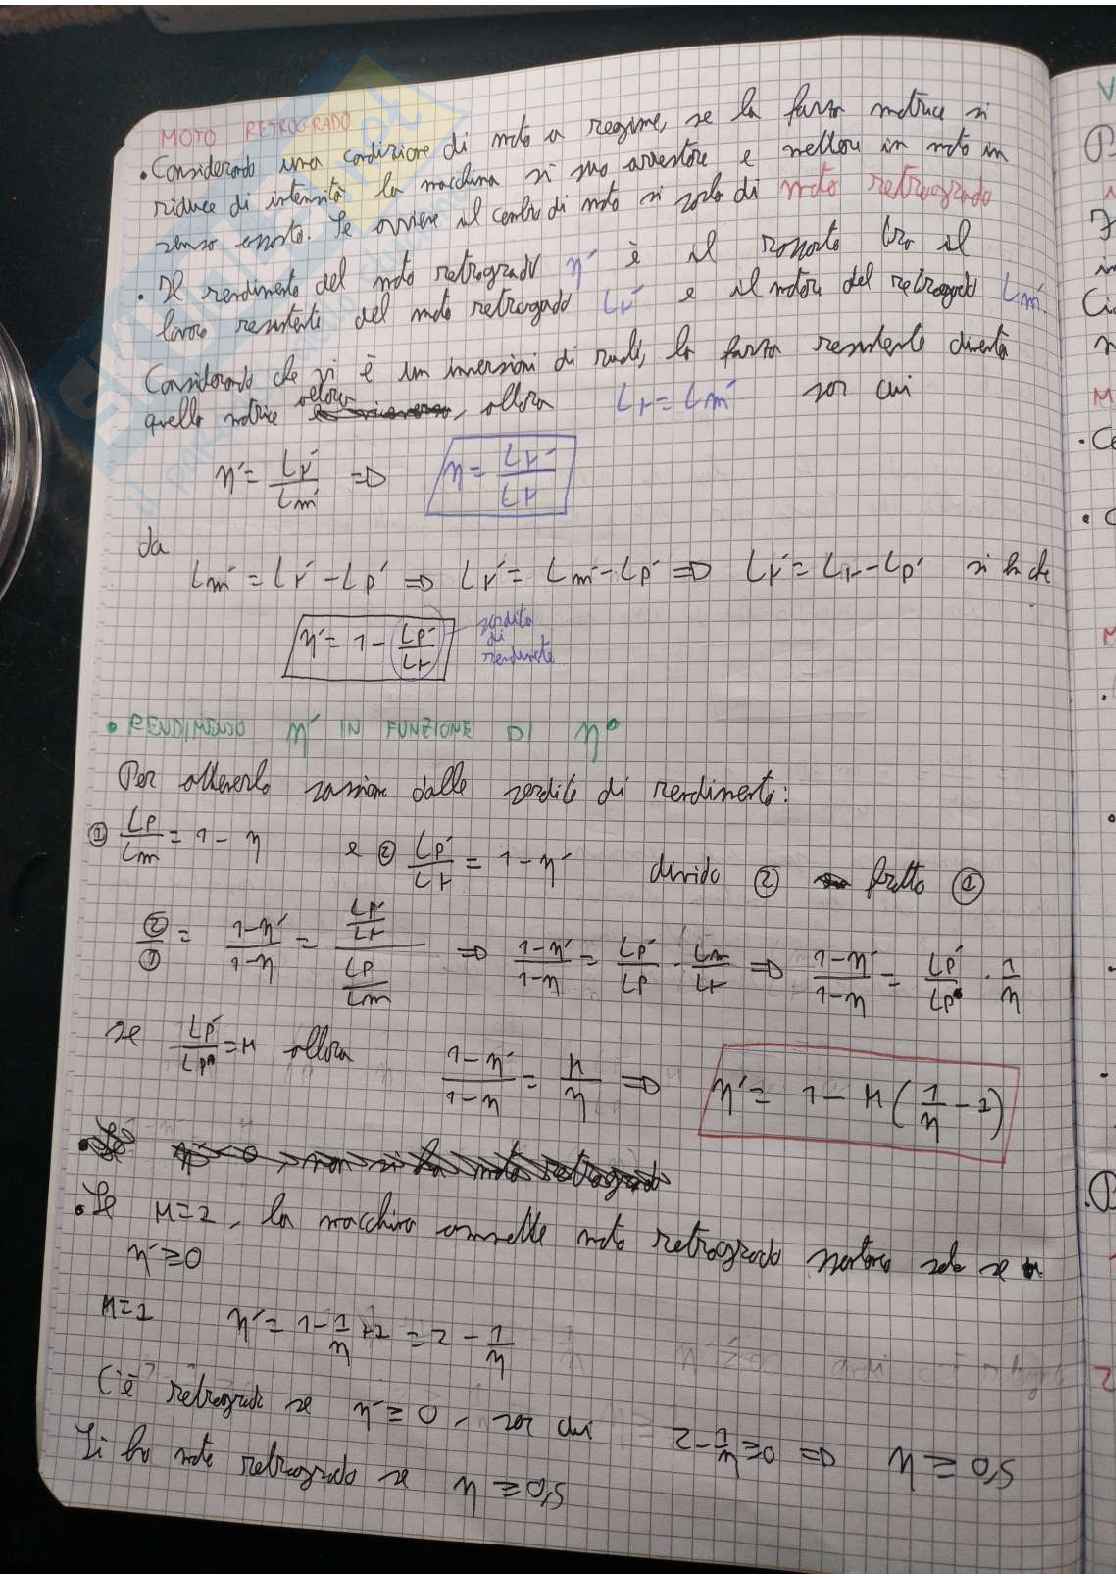 MOTO RETROGRADO
• Considerando una condizione di moto a regime, se la forza motrice si
riduce di intensità la macchina si può arrestare e mettere in moto in
senso opposto. Se avviene il cambio di moto si parla di moto retrogrado
• Il rendimento del moto retrogrado η' è il rapporto tra il
lavoro resistente del moto retrogrado Lr' e il motore del retrogrado Lm'.
Considerando che vi è un inversioni di ruoli, la forza resistente diventa
quella motrice allora Lr = Lm' per cui
η' = Lr'/Lm' => η = Lr'/Lr
da
Lm' = Lr' - Lp' => Lr' = Lm' - Lp' => Lr' = Lr - Lp' si ha che
η' = 1 - Lp'/Lr perdita di rendimento
• RENDIMENTO η' IN FUNZIONE DI η•
Per ottenerlo passiamo dalle perdite di rendimento:
① Lp/Lm = 1 - η e ② Lp'/Lr = 1 - η' divido ② fratto ①
②/① = (1-η')/(1-η) = (Lp'/Lr)/(Lp/Lm) => (1-η')/(1-η) = Lp'/Lp · Lm/Lr => (1-η')/(1-η) = Lp'/Lp · 1/η
se Lp'/Lp = H allora (1-η')/(1-η) = H/η => η' = 1 - H(1/η - 1)
• Se H=1, la macchina ammette moto retrogrado spontaneo solo se
η' ≥ 0
H=1 η' = 1 - 1/η + 1 = 2 - 1/η
C'è retrogrado se η' ≥ 0, per cui 2 - 1/η ≥ 0 => η ≥ 0,5
Si ha moto retrogrado se η ≥ 0,5